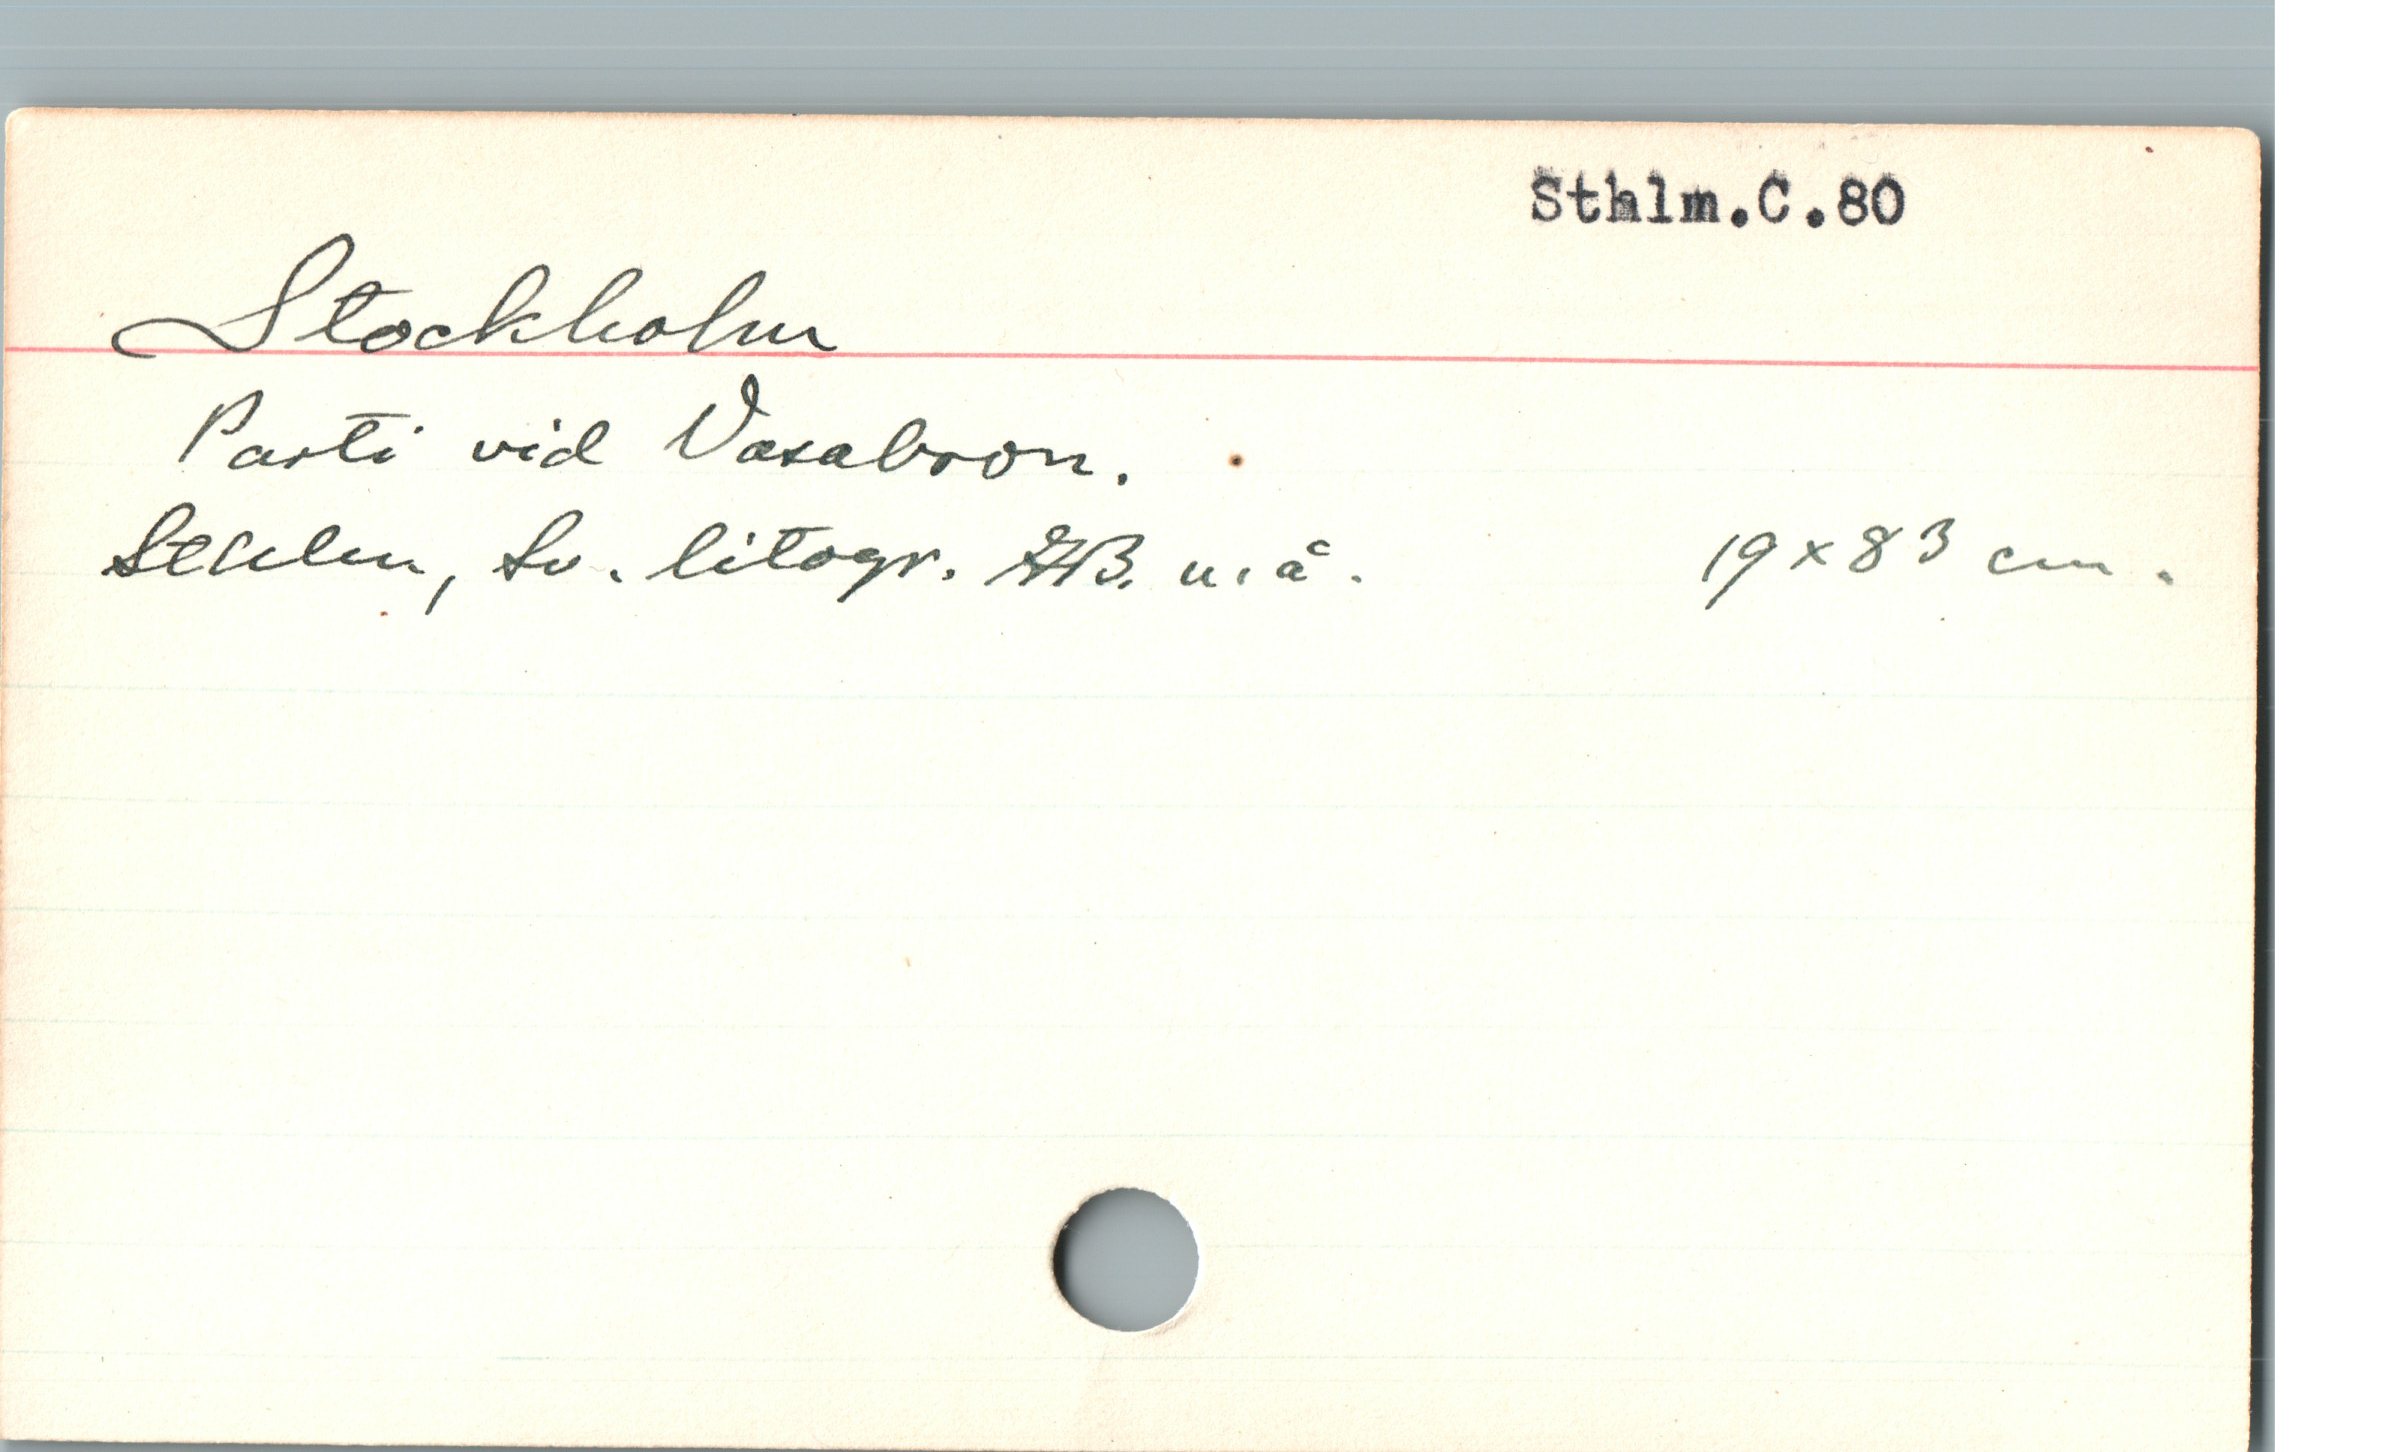 Sthlm.C.80
Stockholm
Parti vid Vasabron.
Sthlm, Sv. litogr. AB. u.å. 19x83 cm.